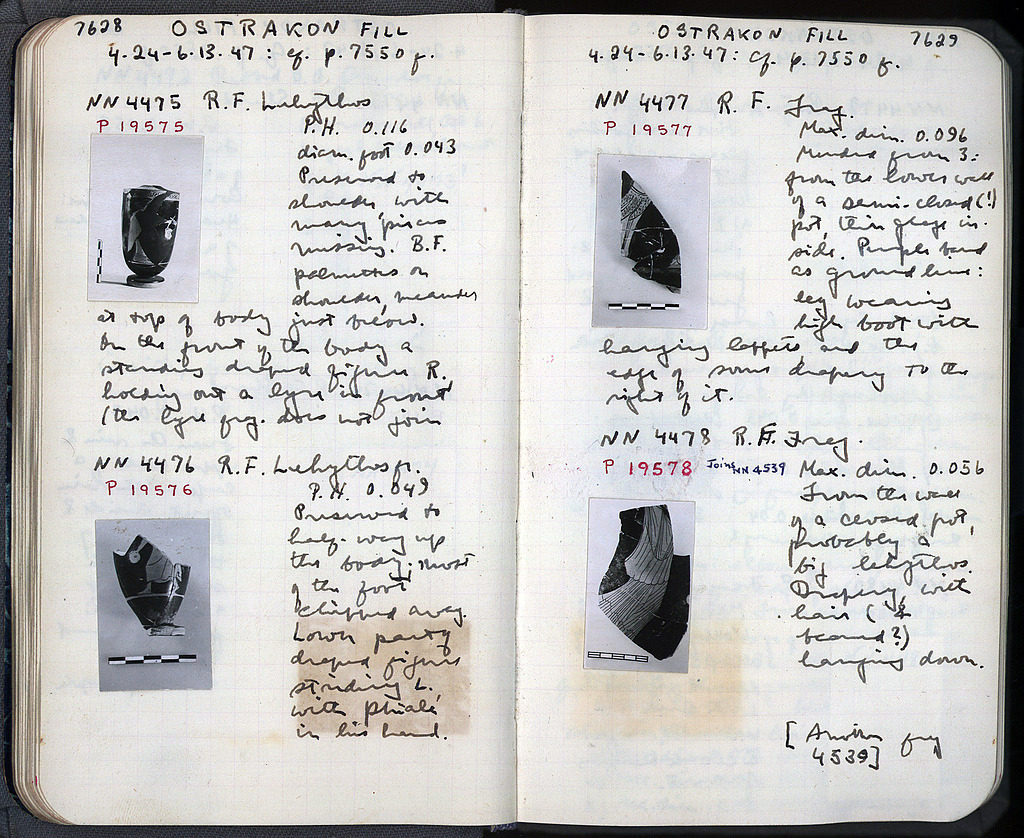 7628 OSTRAKON FILL
4.24-6.13.47: cf. p. 7550 f.
NN 4475 R.F. Lekythos
P 19575
P.H. 0.116
diam. foot 0.043
Preserved to
shoulder with
many pieces
missing. B.F.
palmettes on
shoulder, meander
at top of body just below.
On the front of the body a
standing draped figure R.
holding out a lyre in front
(the lyre frg. does not join
NN 4476 R.F. Lekythos fr.
P 19576
P.H. 0.049
Preserved to
half-way up
the body; most
of the foot
chipped away.
Lower part of
draped figure
striding L.
with phiale
in his hand.
OSTRAKON FILL 7629
4.24-6.13.47: cf. p. 7550 f.
NN 4477 R. F. Frag.
P 19577
Max. dim. 0.096
Mended from 3:
from the lower wall
of a semi-closed (!)
pot, thin glaze in-
side. Purple band
as ground line:
leg wearing
high boot with
hanging lappets, and the
edge of some drapery to the
right of it.
NN 4478 R.F. Frag.
P 19578 Joins NN 4539
Max. dim. 0.056
From the wall
of a closed pot,
probably a
big lekythos.
Drapery, with
hair (&
beard?)
hanging down.
[Another frg
4539]